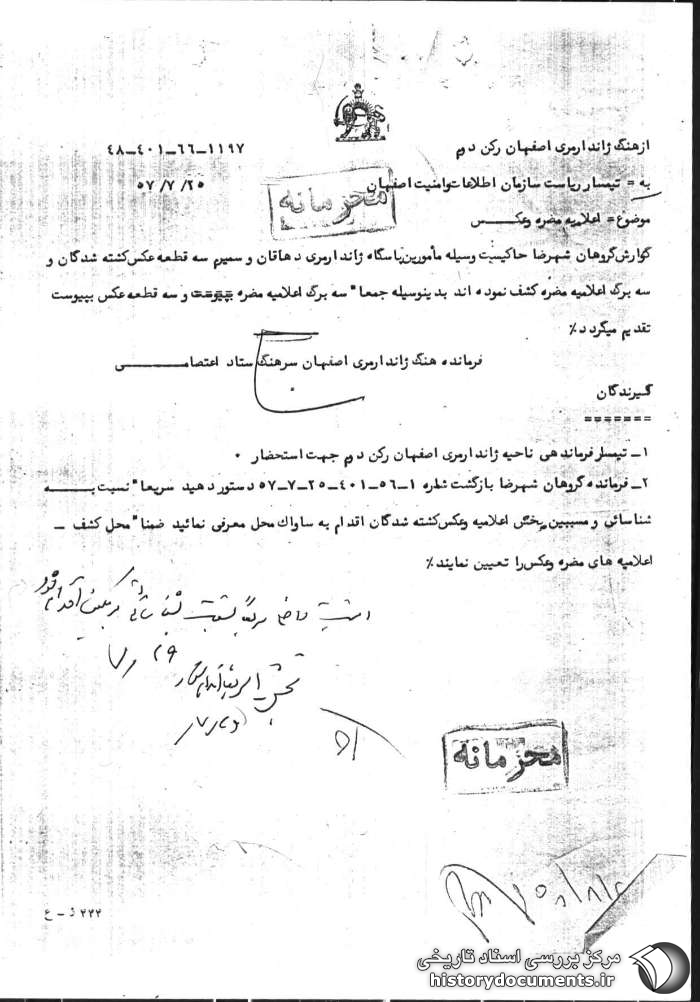 ازهنگ ژاندارمری اصفهان رکن دوم ۱۱۹۷-۶۶-۴۰۱-۴۸
به = تیمسار ریاست سازمان اطلاعات وامنیت اصفهان ۵۷/۷/۲۵
محرمانه
موضوع = اعلامیه مضره وعکس
گزارش گروهان شهرضا حاکیست وسیله مأمورین پاسگاه ژاندارمری دهاقان و سمیرم سه قطعه عکس کشته شدگان و
سه برگ اعلامیه مضره کشف نموده اند بدینوسیله جمعا" سه برگ اعلامیه مضره و سه قطعه عکس بپیوست
تقدیم میگردد٪
فرمانده هنگ ژاندارمری اصفهان سرهنگ ستاد اعتصامی
گیرندگان
=======
۱- تیمسار فرماندهی ناحیه ژاندارمری اصفهان رکن دوم جهت استحضار .
۲- فرمانده گروهان شهرضا بازگشت شماره ۱-۵۶-۴۰۱-۲۵-۷-۵۷ دستور دهید سریعا" نسبت به
شناسائی و مسببین پخش اعلامیه وعکس کشته شدگان اقدام به ساواک محل معرفی نمائید ضمنا" محل کشف -
اعلامیه های مضره وعکس را تعیین نمایند٪
محرمانه
۲۲۲ ذ - ع
مرکز بررسی اسناد تاریخی
historydocuments.ir